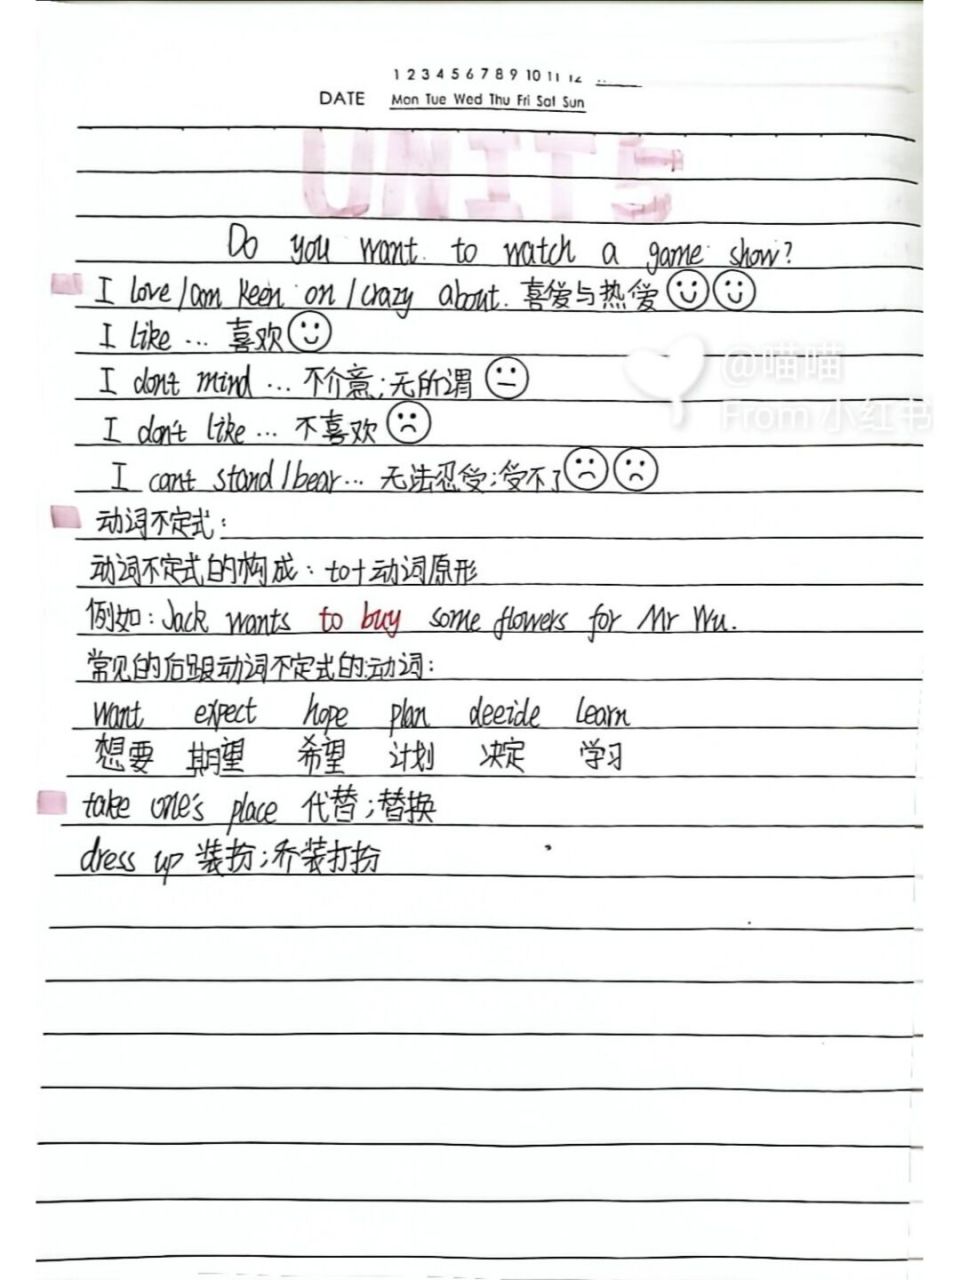 1 2 3 4 5 6 7 8 9 10 11 12
DATE Mon Tue Wed Thu Fri Sat Sun
UNIT 5
Do you want to watch a game show?
I love/am keen on/crazy about. 喜爱与热爱
I like ... 喜欢
I dont mind ... 不介意;无所谓
I don't like ... 不喜欢
I cant stand/bear... 无法忍受;受不了
动词不定式:
动词不定式的构成: to+动词原形
例如: Jack wants to buy some flowers for Mr Wu.
常见的后跟动词不定式的动词:
want expect hope plan deeide learn
想要 期望 希望 计划 决定 学习
take one's place 代替;替换
dress up 装扮;乔装打扮
@喵喵
From 小红书